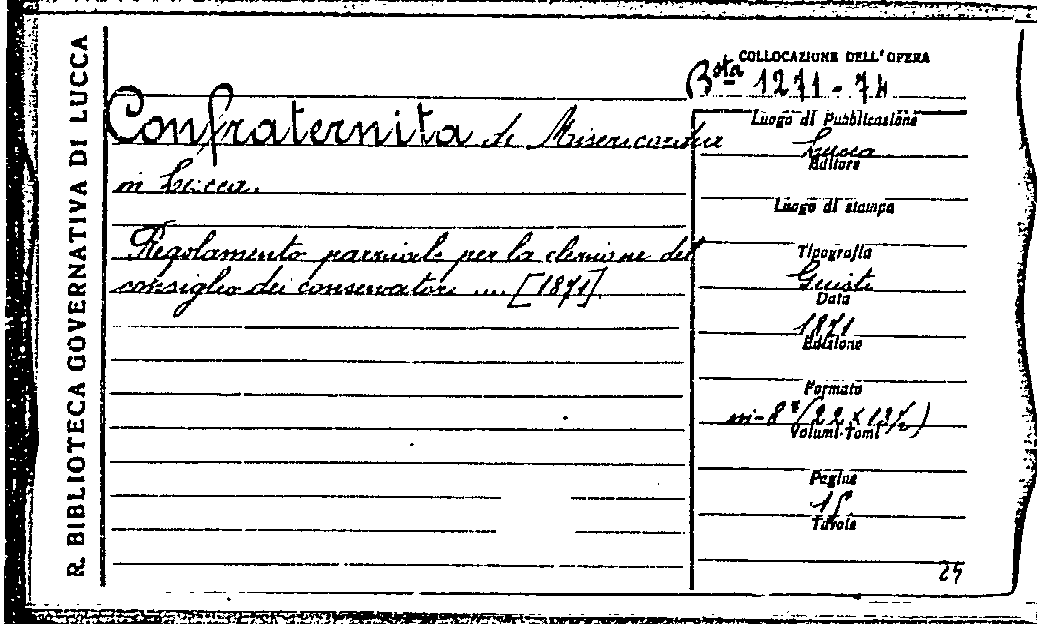 R. BIBLIOTECA GOVERNATIVA DI LUCCA
COLLOCAZIONE DELL'OPERA
Bsta 1271-74
Confraternita di Misericordia
in Lucca.
Regolamento parziale per la elezione del
consiglio dei conservatori .... [1871]
Luogo di Pubblicazione
Lucca
Editore
Luogo di stampa
Tipografia
Giusti
Data
1871
Edizione
Formato
in-8° (22 x 13½)
Volumi-Tomi
Pagine
Tavole
25